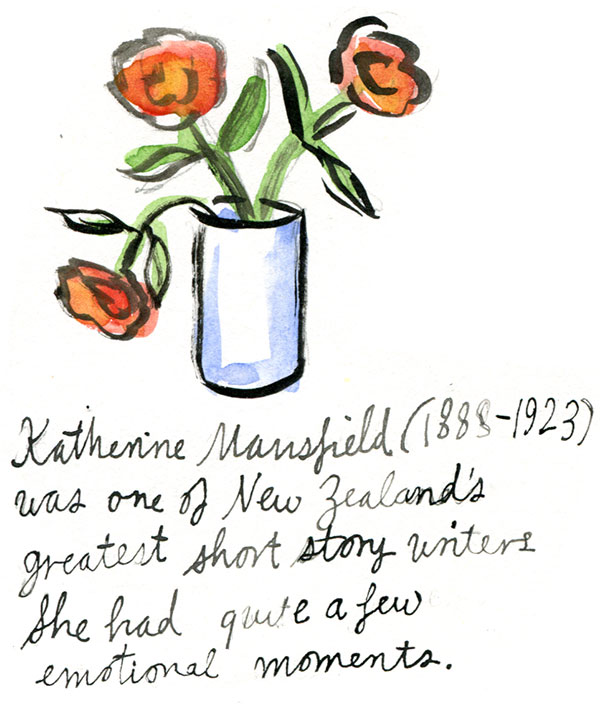 Katherine Mansfield (1888-1923)
was one of New Zealand's
greatest short story writers
She had quite a few
emotional moments.